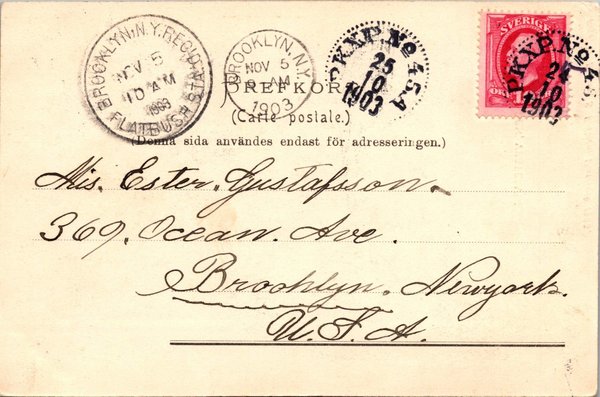 BROOKLYN, N.Y. REC'D
NOV 5
10 AM
1903
FLATBUSH STA.
BROOKLYN, N.Y.
NOV 5
AM
1903
PKXP. No 45A
25
10
1903
SVERIGE
PKXP. No 45
24
10
1903
BREFKORT
(Carte postale.)
(Denna sida användes endast för adresseringen.)
Mis. Ester. Gustafsson.
369. Ocean. Ave.
Brooklyn. Newyork.
U.S.A.